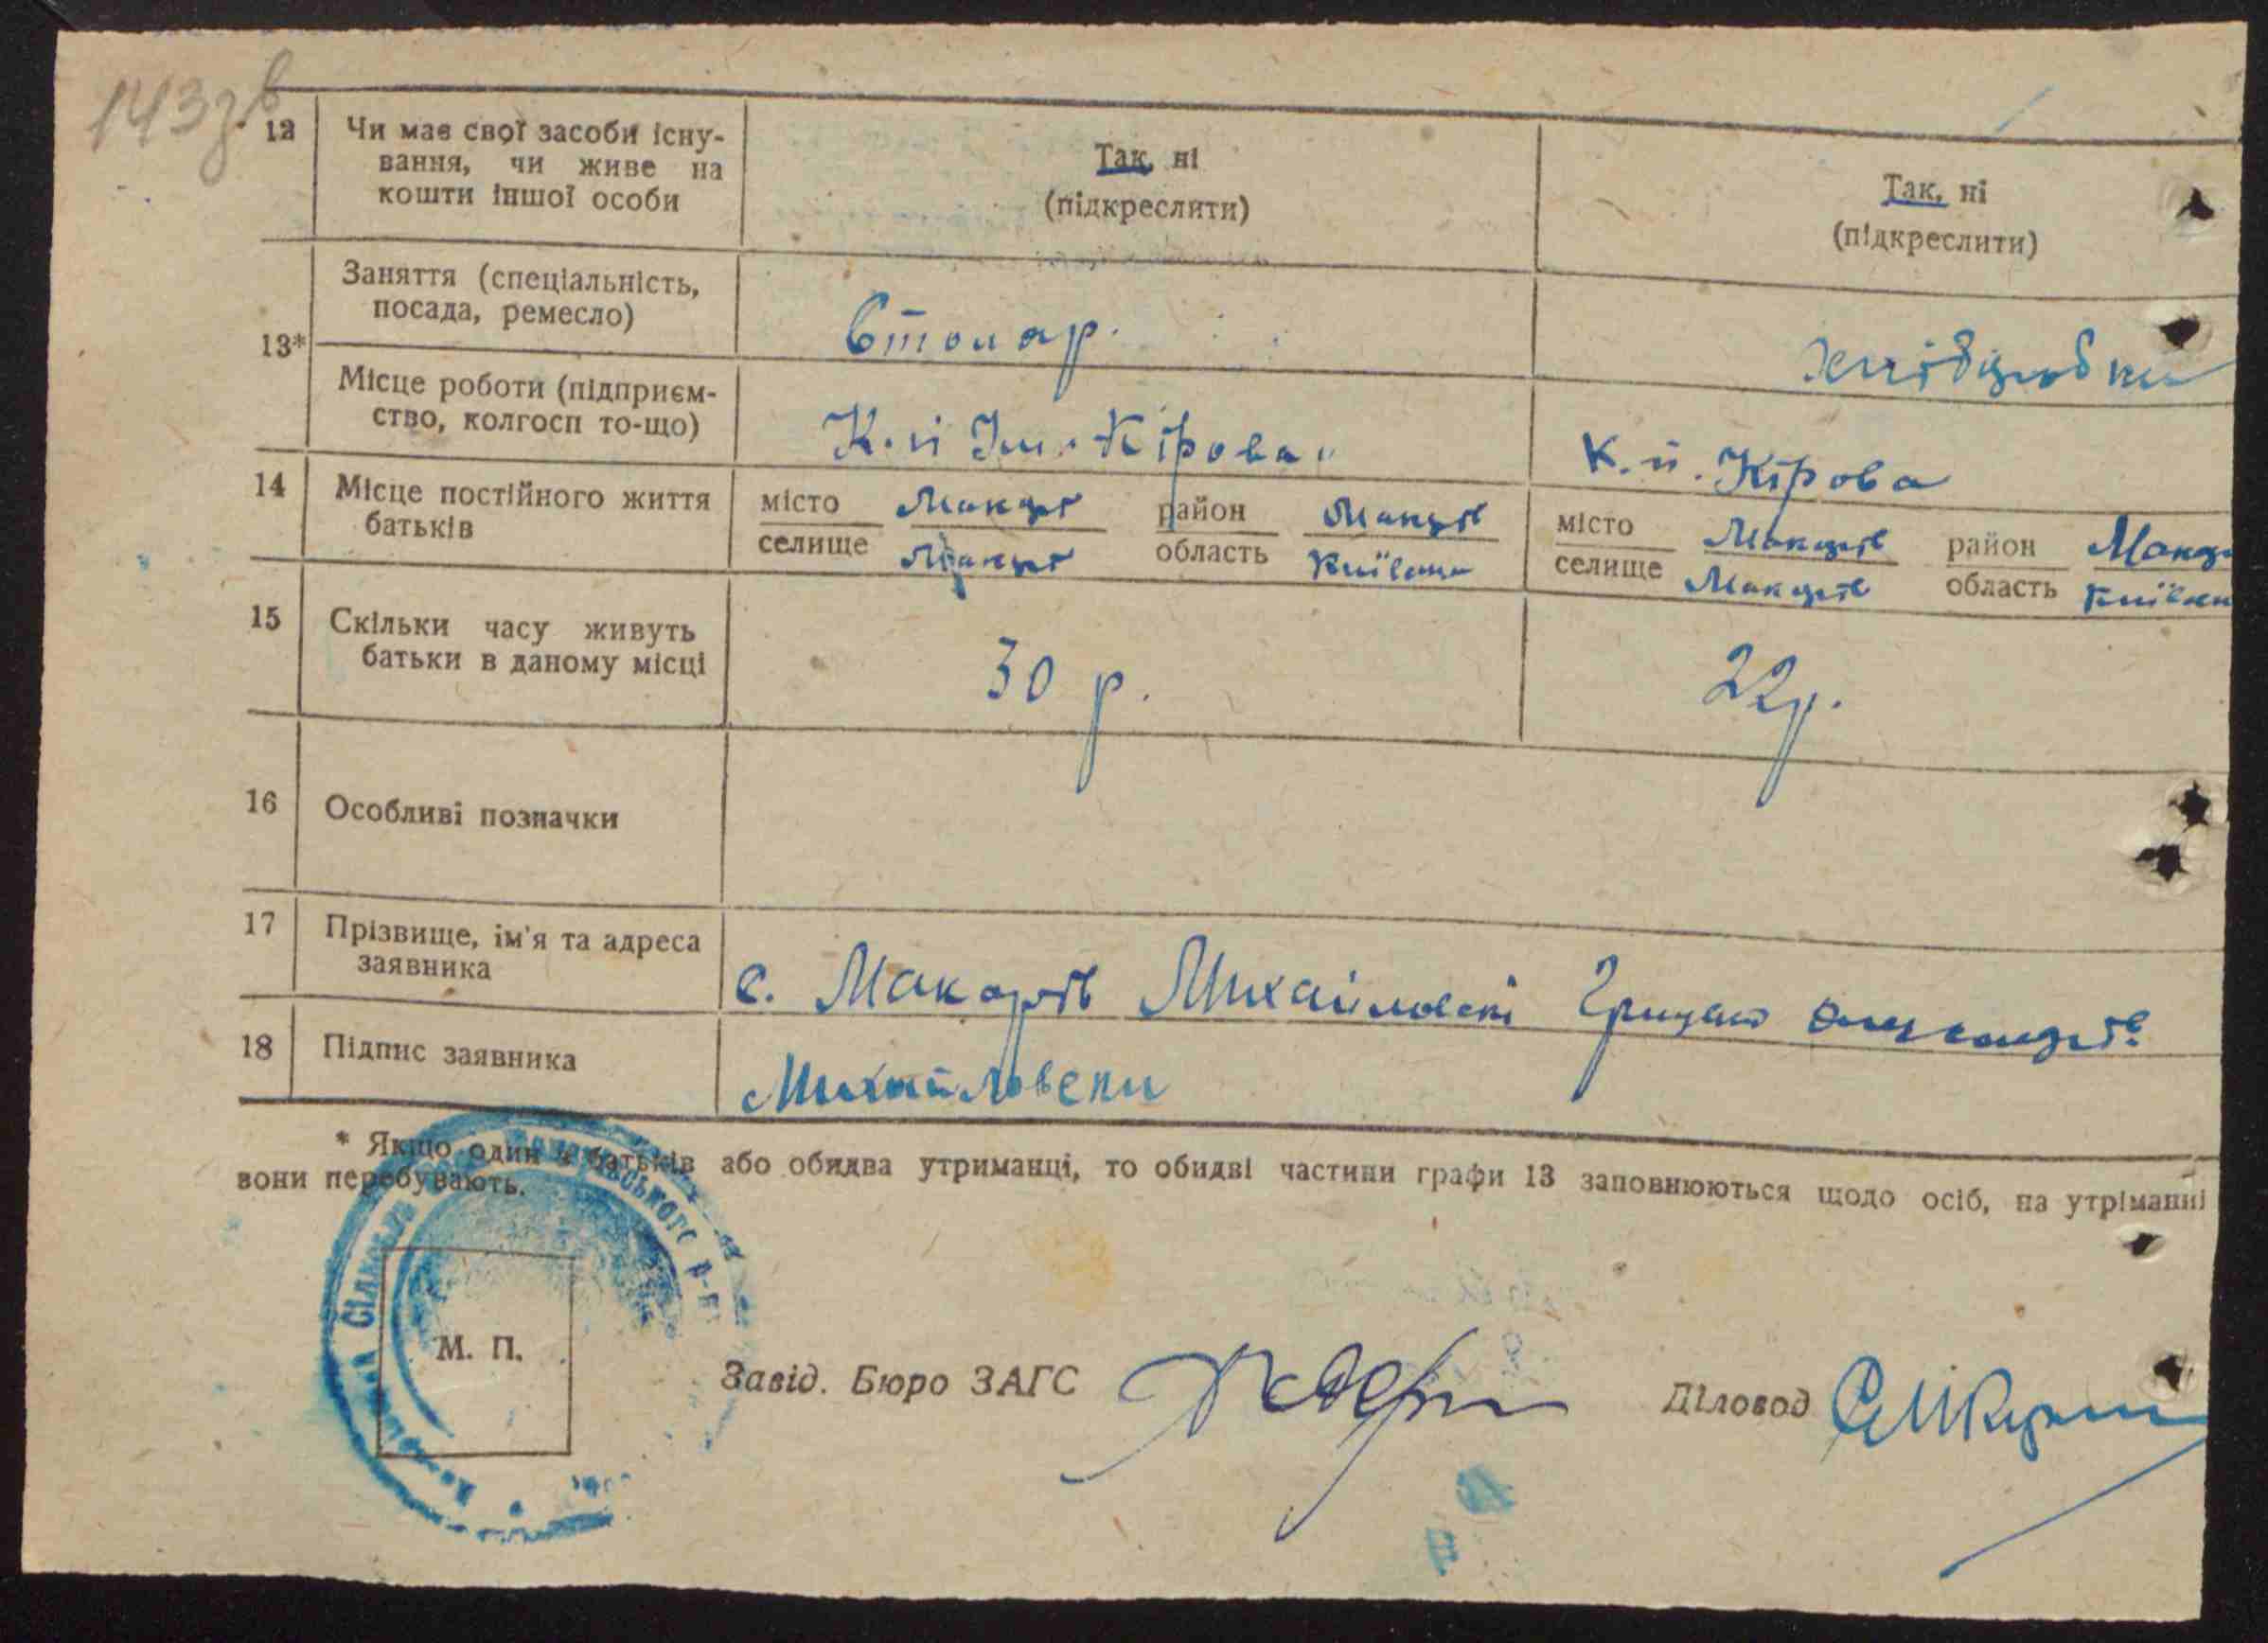 143зв
12 Чи має свої засоби існу-
вання, чи живе на
кошти іншої особи
Так, ні
(підкреслити)
Так, ні
(підкреслити)
13*
Заняття (спеціальність,
посада, ремесло)
Столяр.
хлібороб
Місце роботи (підприєм-
ство, колгосп то-що)
К. ім. Кірова"
К. ім. Кірова
14 Місце постійного життя
батьків
місто Макарів район Макарів
селище Макарів область Київськ
місто Макарів район Мака
селище Макарів область Київськ
15 Скільки часу живуть
батьки в даному місці
30 р.
22 р.
16 Особливі позначки
17 Прізвище, ім'я та адреса
заявника
с. Макарів Михайловськ Грицько Олександ.
18 Підпис заявника
Михайловськи
* Якщо один з батьків або обидва утриманці, то обидві частини графи 13 заповнюються щодо осіб, на утріманні
вони перебувають.
Сільська
ського р-н
М. П.
Завід. Бюро ЗАГС
Діловод